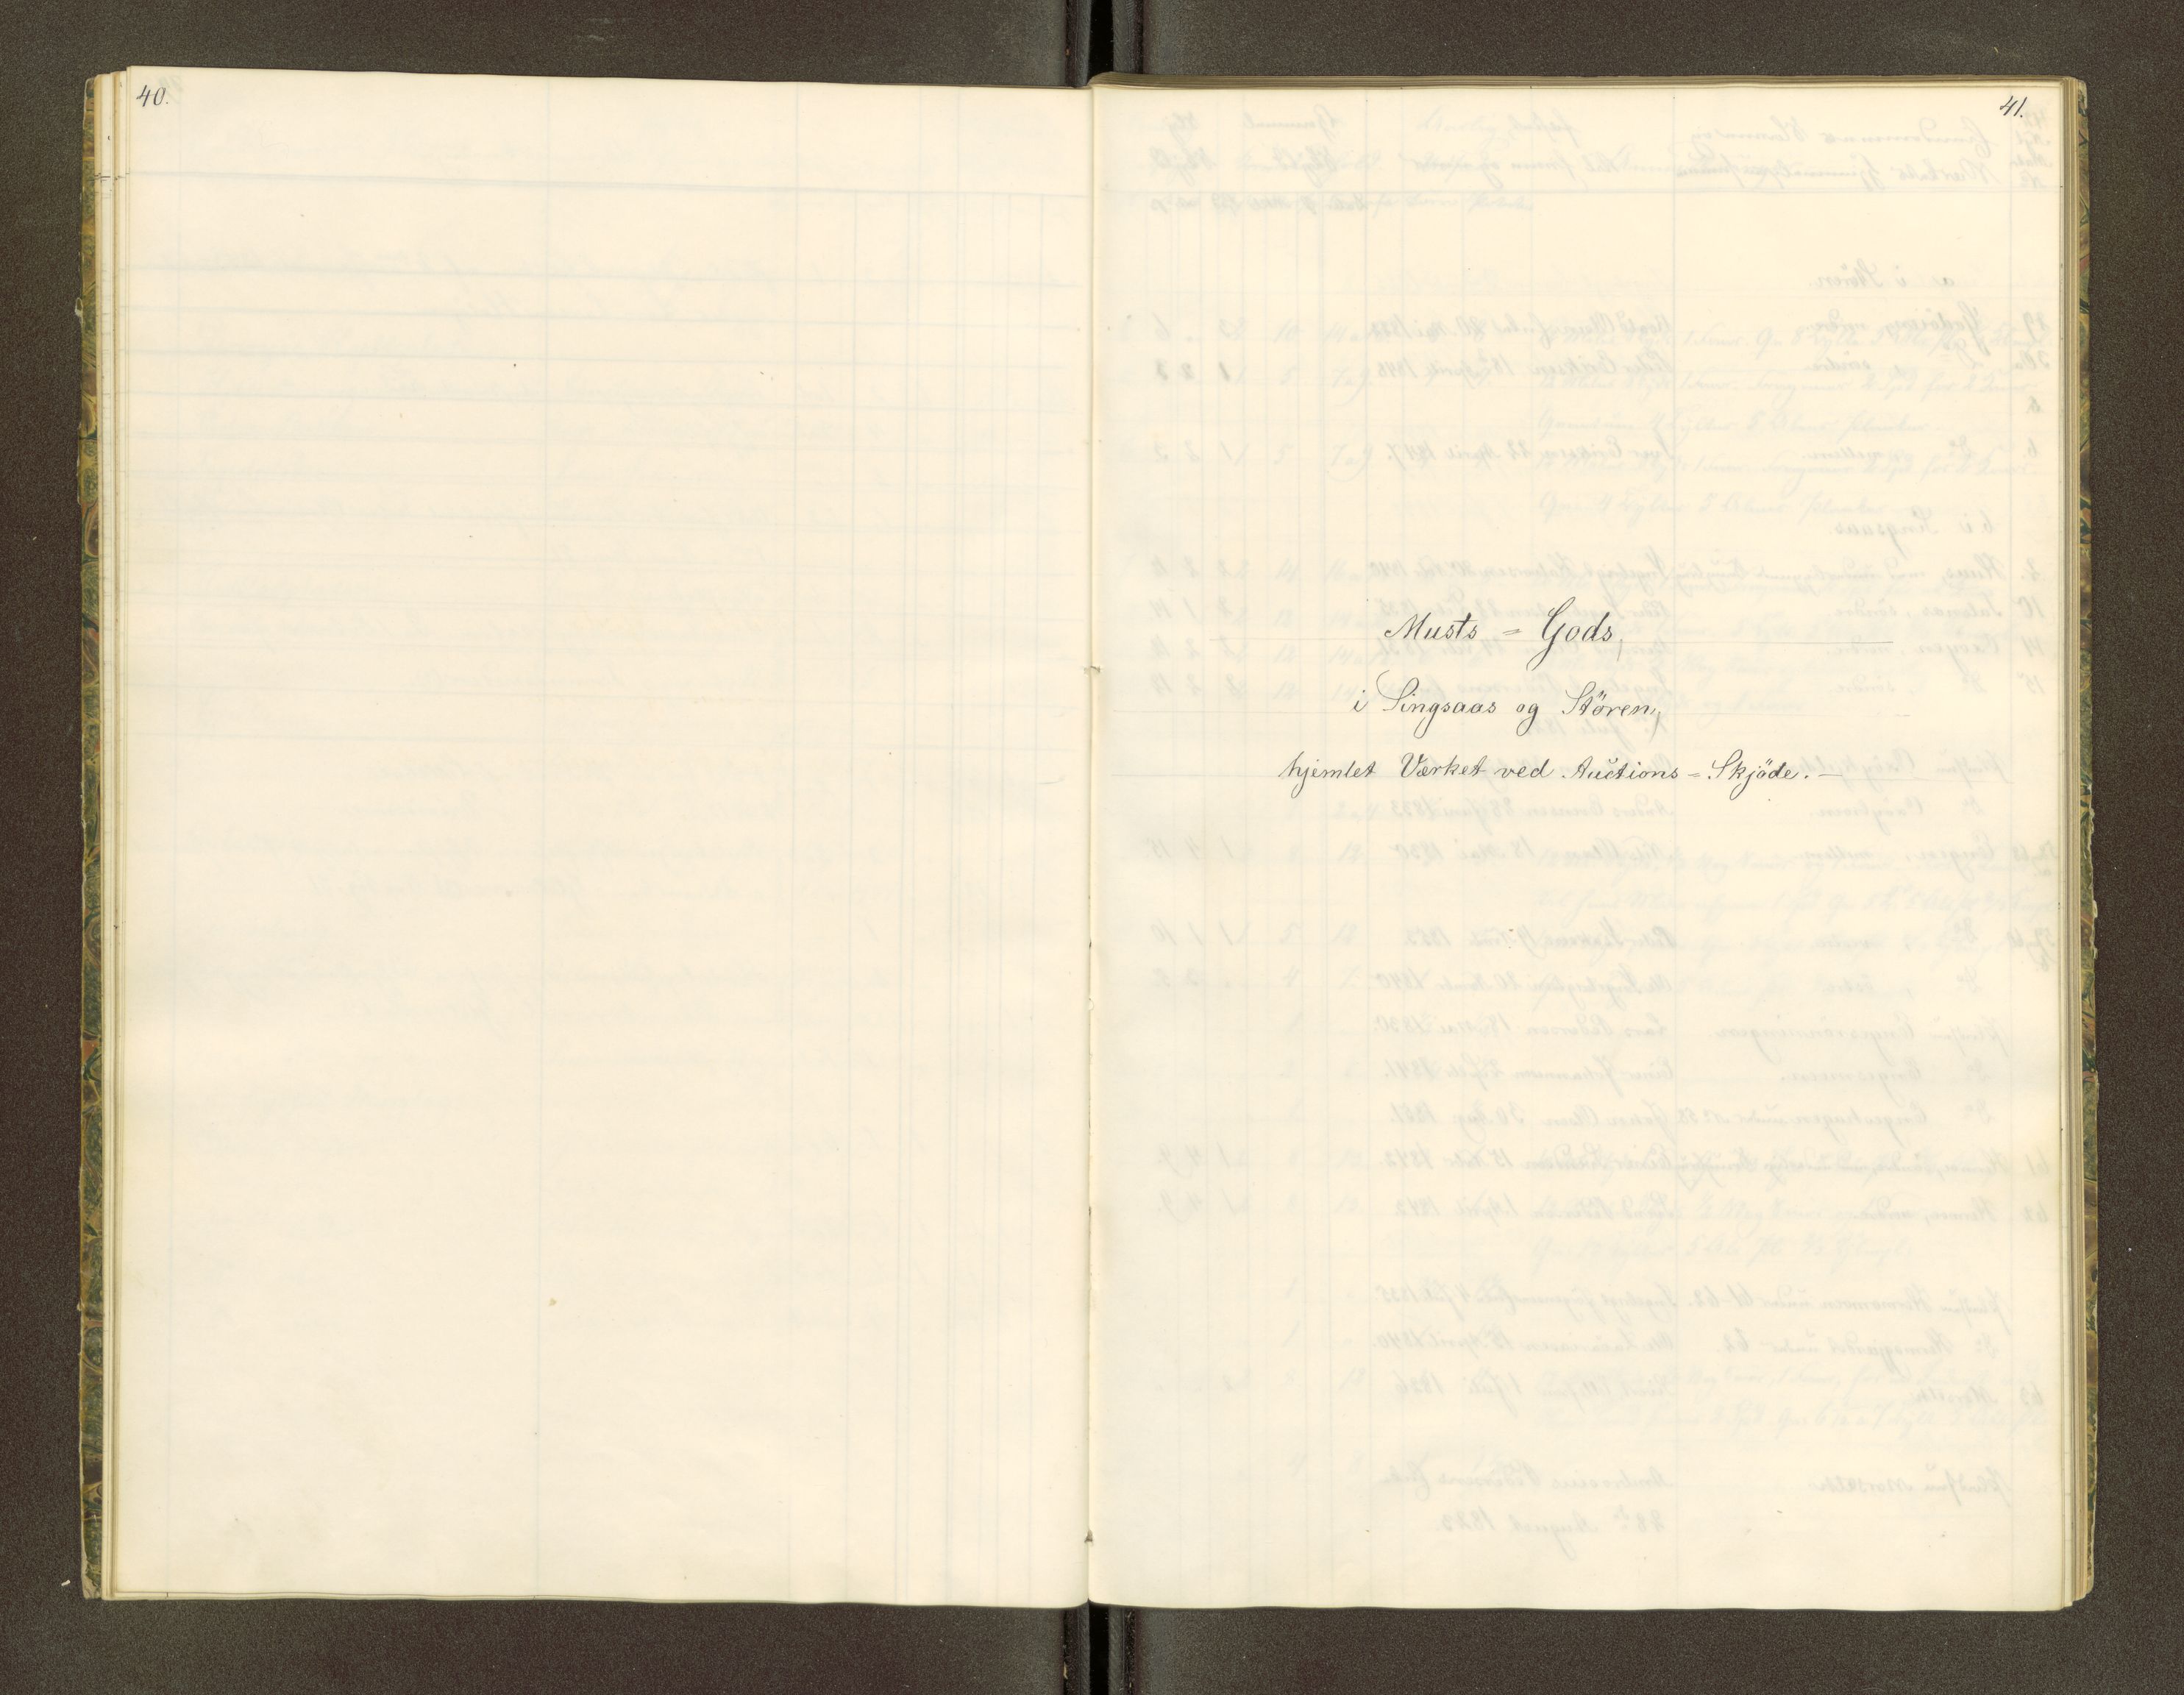 40.
41.
Musts = Gods,
i Singsaas og Stören,
hjemlet Værket ved Auctions = Skjöde. —